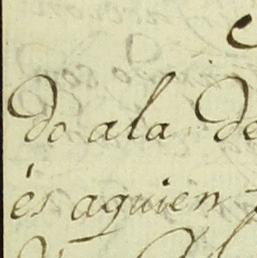 do ala de
és aquien